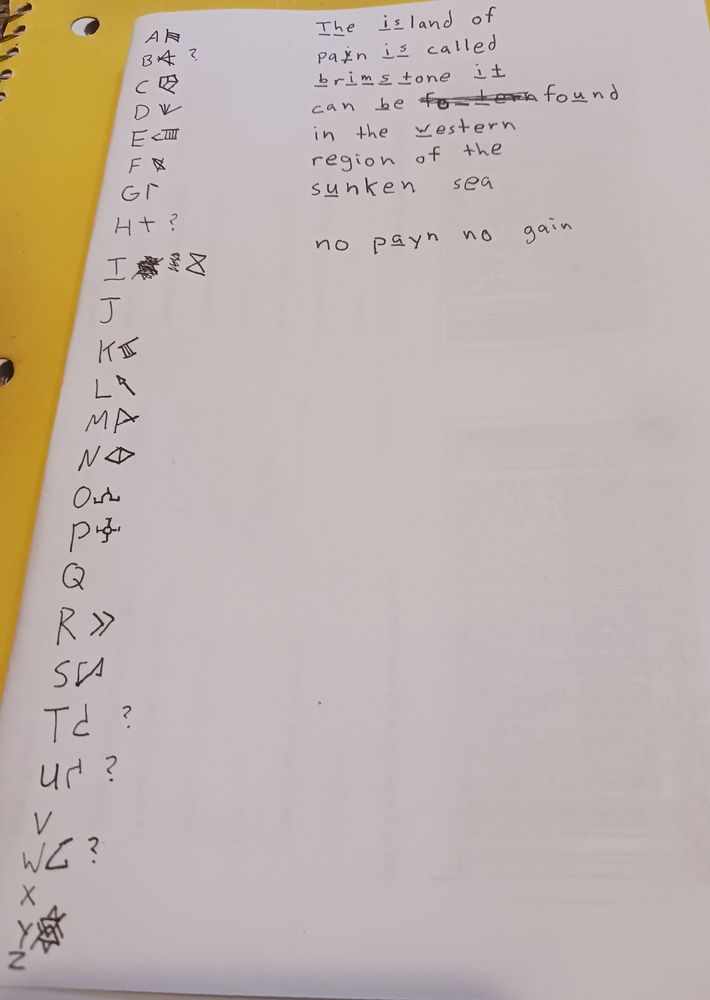 A
B ?
C
D
E
F
G
H ?
I
J
K
L
M
N
O
P
Q
R
S
T ?
U ?
V
W ?
X
Y
Z
The island of
payn is called
brimstone it
can be found
in the western
region of the
sunken sea
no payn no gain